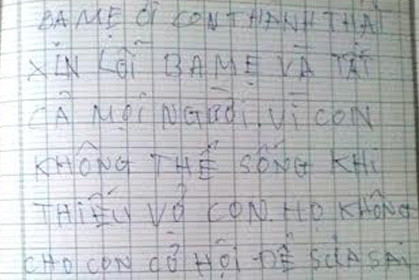 BA MẸ ƠI CON THÀNH THẬT
XIN LỖI BA MẸ VÀ TẤT
CẢ MỌI NGƯỜI. VÌ CON
KHÔNG THỂ SỐNG KHI
THIẾU VỢ CON. HỌ KHÔNG
CHO CON CƠ HỘI ĐỂ SỬA SAI